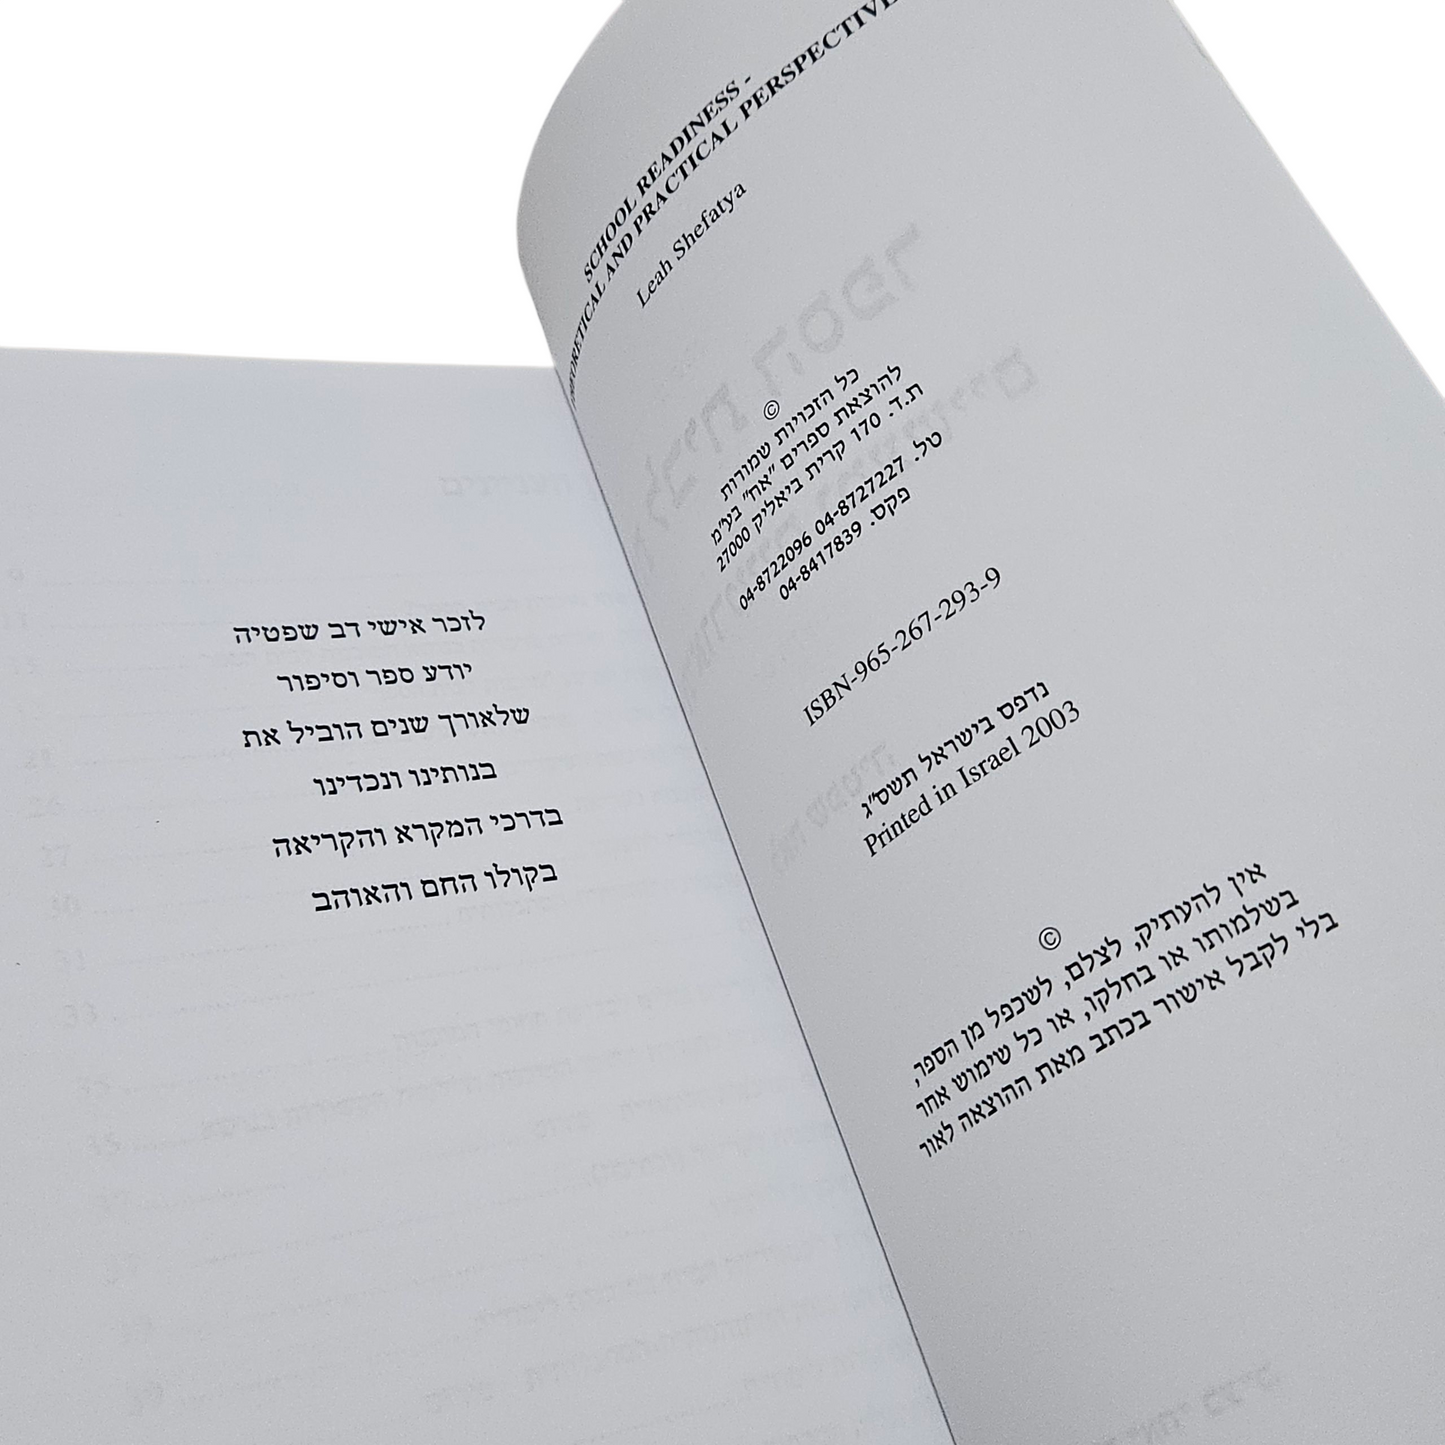 SCHOOL READINESS -
THEORETICAL AND PRACTICAL PERSPECTIVE
Leah Shefatya
©
כל הזכויות שמורות
להוצאת ספרים "אח" בע"מ
ת.ד. 170 קרית ביאליק 27000
טל. 04-8727227 04-8722096
פקס. 04-8417839
ISBN-965-267-293-9
נדפס בישראל תשס"ג
Printed in Israel 2003
©
אין להעתיק, לצלם, לשכפל מן הספר,
בשלמותו או בחלקו, או כל שימוש אחר
בלי לקבל אישור בכתב מאת ההוצאה לאור
לזכר אישי דב שפטיה
יודע ספר וסיפור
שלאורך שנים הוביל את
בנותינו ונכדינו
בדרכי המקרא והקריאה
בקולו החם והאוהב